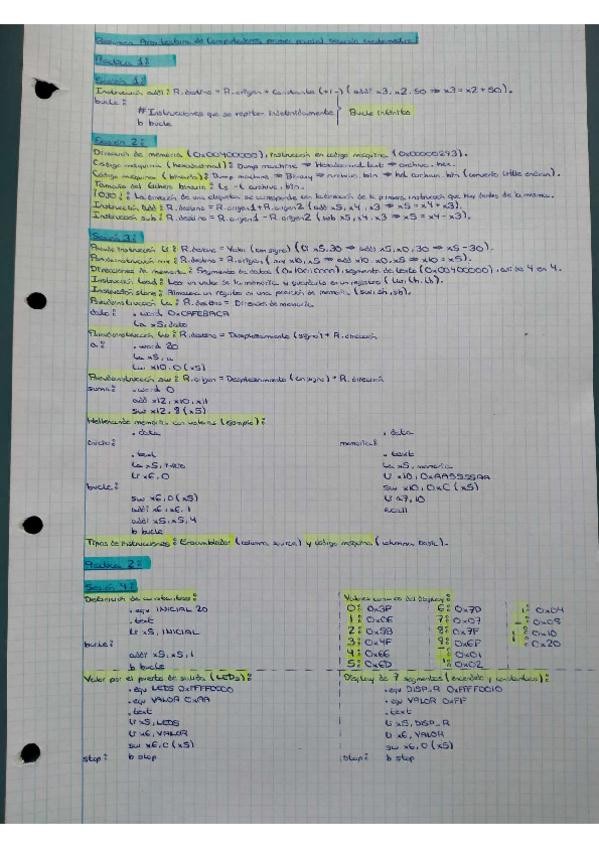 Resumen Arquitectura de Computadores, primer parcial
Práctica 1:
Sesión 1:
Instrucción addi: R.destino = R.origen + Constante (+/-) (addi x3, x2, 50 => x3 = x2 + 50).
bucle:
# Instrucciones que se repiten indefinidamente } Bucle infinito
b bucle
Sesión 2:
Dirección de memoria (0x00400000), instrucción en código máquina
Código máquina (hexadecimal): Dump machine => Hexadecimal text => archivo.hex.
Código máquina (binario): Dump machine => Binary => archivo.bin => hd archivo.bin (convierte little endian).
Tamaño del fichero binario: ls -l archivo.bin.
¡OJO!: La dirección de una etiqueta se corresponde con la dirección de la primera instrucción que hay después de la misma.
Instrucción add: R.destino = R.origen1 + R.origen2 (add x5, x4, x3 => x5 = x4 + x3).
Instrucción sub: R.destino = R.origen1 - R.origen2 (sub x5, x4, x3 => x5 = x4 - x3).
Sesión 3:
Pseudoinstrucción li: R.destino = Valor (con signo)
Pseudoinstrucción mv: R.destino = R.origen (mv x10, x5 => add x10, x0, x5 => x10 = x5).
Direcciones de memoria: Segmento de datos, segmento de texto (0x00400000), de 4 en 4.
Instrucción load: Lee un valor de la memoria y guardarlo en un registro (lw, lh, lb).
Instrucción store: Almacena un registro en una posición de memoria (sw, sh, sb).
Pseudoinstrucción la: R.destino = Dirección de memoria
dato: .word 0xCAFEBACA
la x5, dato
Pseudoinstrucción lw: R.destino = Desplazamiento (signo) + R.dirección
a: .word 20
la x5, a
lw x10, 0(x5)
Pseudoinstrucción sw: R.origen = Desplazamiento (con signo) + R.dirección
suma: .word 0
add x12, x10, x11
sw x12, 8(x5)
Rellenando memoria con valores (ejemplo):
.data .data
memoria:
.text .text
la x5, la x5, memoria
li x6, 0 li x10, 0xAA5555AA
bucle: sw x10, 0xC(x5)
sw x6, 0(x5) li a7, 10
addi x6, x6, 1 ecall
addi x5, x5, 4
b bucle
Tipos de instrucciones: Ensamblador (columna source) y código máquina (columna basic).
Práctica 2:
Sesión 4:
Definición de constantes: Valores del Display:
.equ INICIAL 20 0: 0x3F 6: 0x7D 0x04
.text 1: 0x06 7: 0x07 0x08
li x5, INICIAL 2: 0x5B 8: 0x7F 0x10
bucle: 3: 0x4F 9: 0x6F 0x20
addi x5, x5, 1 4: 0x66 0x01
b bucle 5: 0x6D 0x02
Valor por el puerto de salida (LEDS): Display de 7 segmentos (encendido y constantes):
.equ LEDS 0xFFFF0000 .equ DISP_R 0xFFFF0010
.equ VALOR 0xAA .equ VALOR 0xFF
.text .text
li x5, LEDS li x5, DISP_R
li x6, VALOR li x6, VALOR
sw x6, 0(x5) sw x6, 0(x5)
stop: b stop stop: b stop